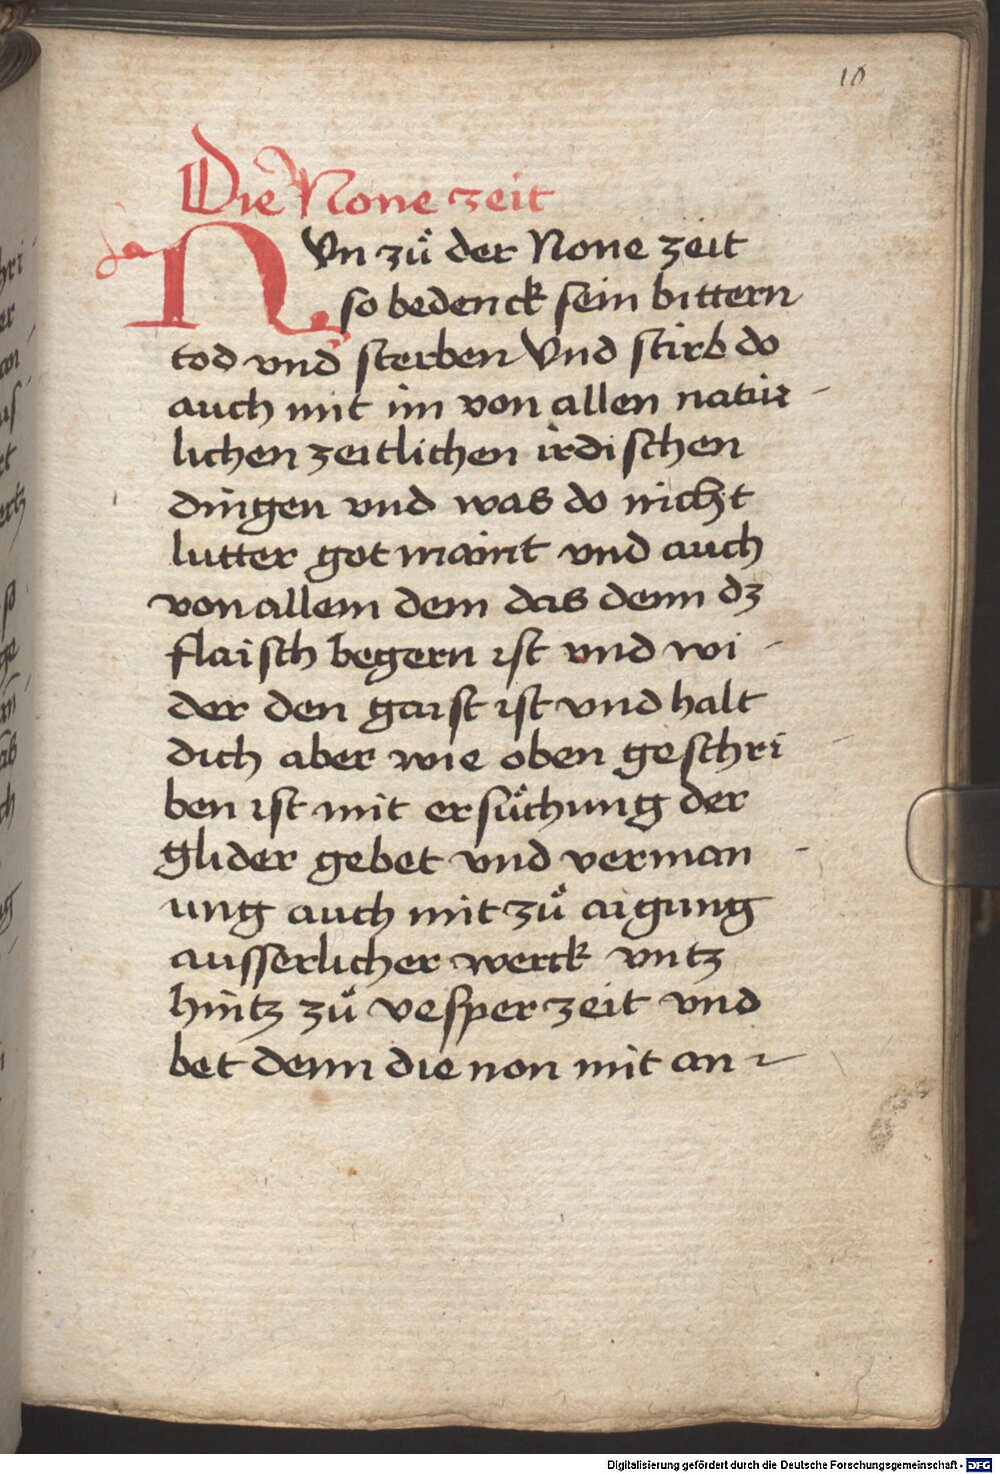 10
Die None zeit
NVn zů der None zeit
so bedenck sein bittern
tod vnd sterben Vnd stirb do
auch mit im von allen natür -
lichen zeitlichen irdischen
dingen vnd was do nicht
lutter got maint vnd auch
von allem dem das denn dz
flaisch begern ist vnd wi -
der den gaist ist vnd halt
dich aber wie oben geschri -
ben ist mit ersůchung der
glider gebet vnd verman -
ung auch mit zů aigung
ausserlicher werck vntz
hintz zů vesper zeit vnd
bet denn die non mit an -
Digitalisierung gefördert durch die Deutsche Forschungsgemeinschaft - DFG